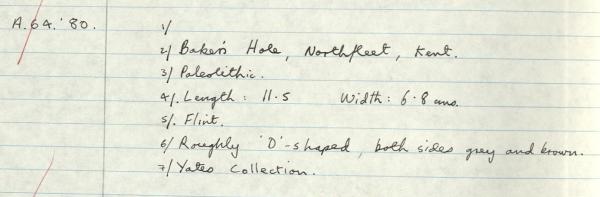 A.64.'80. 1/
2/ Baker's Hole, Northfleet, Kent.
3/ Paleolithic.
4/. Length: 11.5 Width: 6.8 cms.
5/. Flint.
6/ Roughly 'D'-shaped, both sides grey and brown.
7/ Yates Collection.